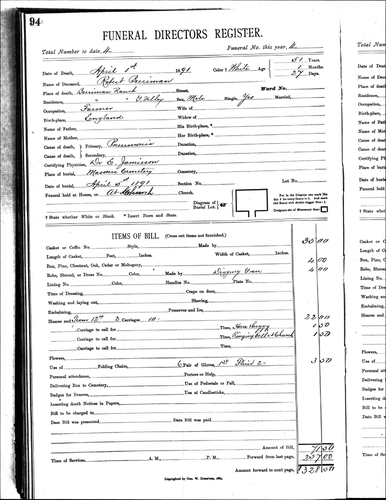 94
FUNERAL DIRECTORS REGISTER.
Total Number to date, 4 Funeral No. this year, 4
Date of Death, April 1st 1891 Color † White Age 51 Years.
1 Months.
27 Days.
Name of Deceased, Robert Berriman
Place of Death, Berriman Ranch Street, Ward No.
Residence, G. Valley Sex, Male Single, Yes Married,
Occupation, Farmer Wife of
Birth-place, England Widow of
Name of Father, His Birth-place, *
Name of Mother, Her Birth-place, *
Cause of death, Primary, Pneumonia Duration,
Cause of death, Secondary, Duration,
Certifying Physician, Dr E. Jamieson
Place of burial, Masonic Cemetery Cemetery, Lot No.
Date of burial, April 3rd 1891 Section No.
Funeral held at Home, or At Church Church. Diagram of Burial Lot.
† State whether White or Black. * Insert Town and State.
ITEMS OF BILL. (Cross out items not furnished.)
Casket or Coffin No. Style, Made by 30 00
Length of Casket, Feet, Inches. Width of Casket, Inches.
Box, Pine, Chestnut, Oak, Cedar or Mahogany, 4 00
Robe, Shroud, or Dress No. Color, Made by Digging Grave 4 00
Lining No. Color, Handles No. Plate No.
Time of Dressing, Corps on door,
Washing and laying out, Shaving,
Embalming, Preserve and Ice,
Hearse and Team 12.00 2 Carriages 10. 22 00
Carriage to call for Time, 1 50
Carriage to call for Time, Ringing Bell 1 50
Carriage to call for Time,
Flowers,
Use of Folding Chairs, 6 Pair of Gloves, 3 50
Personal attendance, Porters or Help,
Delivering Box to Cemetery, Use of Pedestals or Pall,
Badges for Bearers, Use of Candlesticks,
Inserting death Notices in Papers,
Bill to be charged to
Date Bill was presented Date Bill was paid.
Amount of Bill,
Time of Services, A. M., P. M. Forward from last page,
Amount forward to next page, 1328 50